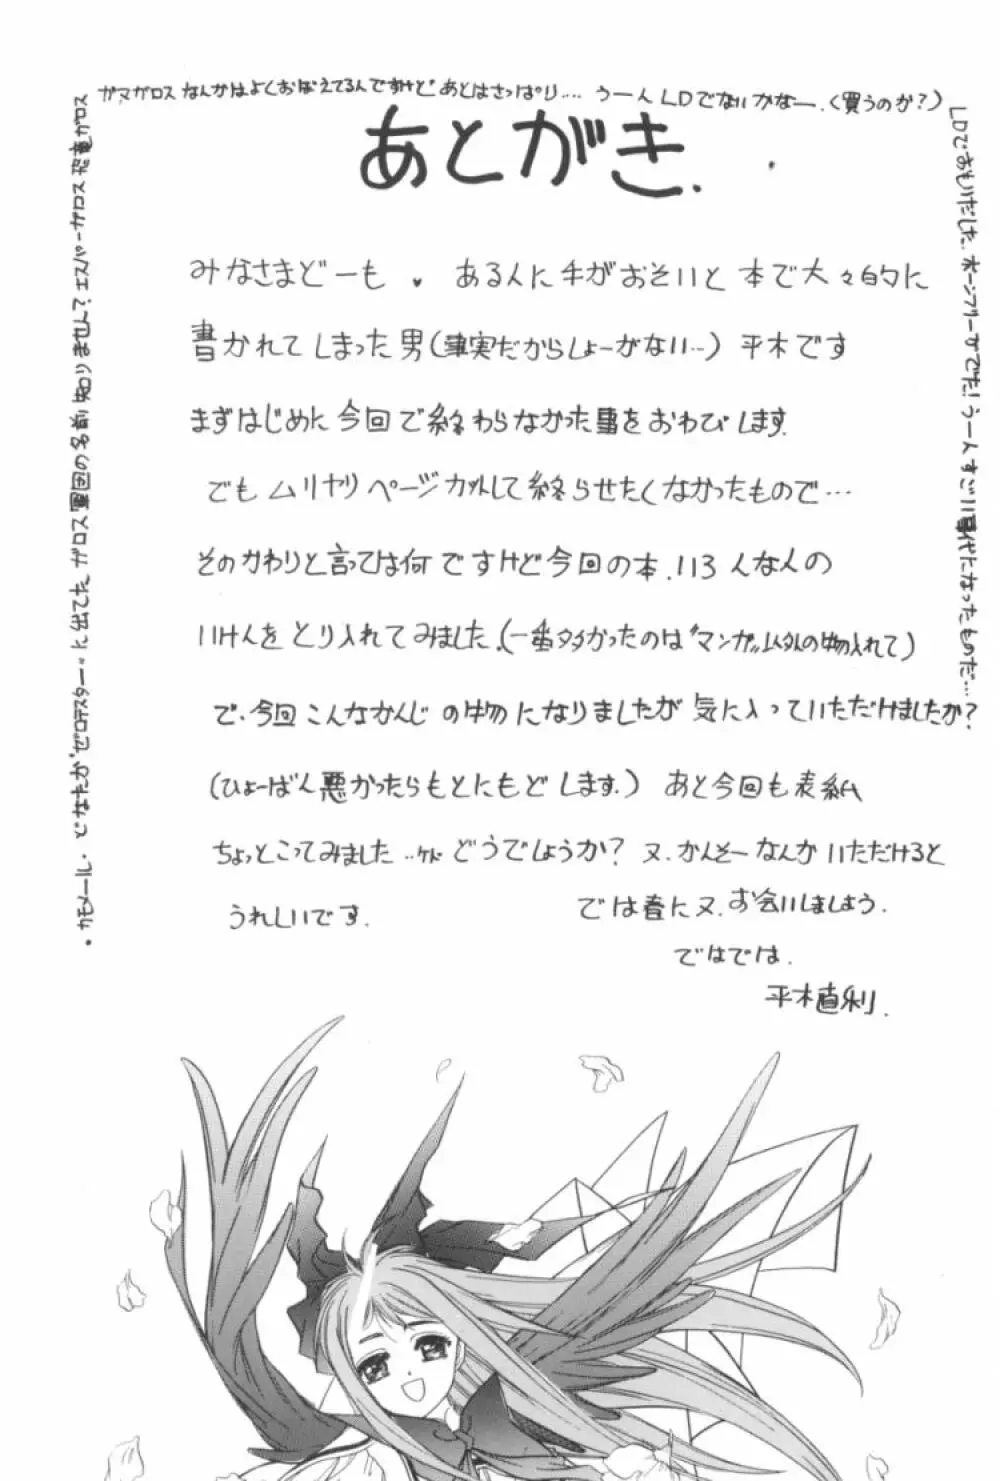 ガマガロス なんかはよくおぼえてるんですけど あとはさっぱり.... うーん LDでないかなー.(買うのか?)
あとがき.
みなさまどーも ♥ ある人に手がおそいと 本で大々的に
書かれてしまった男(事実だからしょーがない…) 平木です
まずはじめに今回で終わらなかった事をおわびします.
でもムリヤリページカットして終らせたくなかったもので…
そのかわりと言っては何ですけど今回の本.いろんな人の
いけんをとり入れてみました.(一番多かったのは"マンガ"以外の物入れて)
で.今回こんなかんじの物になりましたが気に入っていただけましたか?
(ひょーばん悪かったらもとにもどします.) あと今回も表紙
ちょっとこってみました…ケド どうでしょうか? 又.かんそーなんか いただけると
うれしいです. では春に又.お会いしましょう.
ではでは.
平木直利.
LDでおもいだした.ボーンフリーがでた!うーんすごい時代になったものだ…
・カモメール.どなたか"ゼロテスター"に出てた ガロス軍団の名前 知りません? エスパーガロス 恐竜ガロス